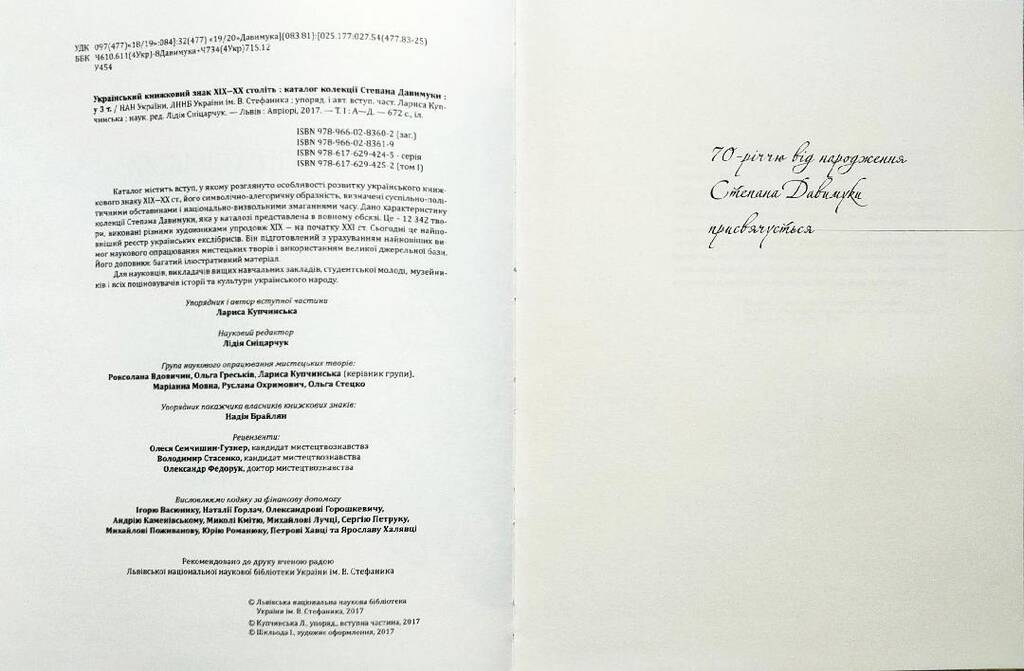 УДК 097(477)«18/19»:084]:32(477) «19/20»Давимука](083.81):[025.177:027.54(477.83-25)
ББК Ч610.611(4Укр)-8Давимука+Ч734(4Укр)715.12
У454
Український книжковий знак XIX–XX століть : каталог колекції Степана Давимуки :
у 3 т. / НАН України, ЛННБ України ім. В. Стефаника ; упоряд. і авт. вступ. част. Лариса Куп-
чинська ; наук. ред. Лідія Сніцарчук. — Львів : Апріорі, 2017. — Т. І : А—Д. — 672 с., іл.
ISBN 978-966-02-8360-2 (заг.)
ISBN 978-966-02-8361-9
ISBN 978-617-629-424-5 - серія
ISBN 978-617-629-425-2 (том I)
Каталог містить вступ, у якому розглянуто особливості розвитку українського книж-
кового знаку XIX—XX ст., його символічно-алегоричну образність, визначені суспільно-полі-
тичними обставинами і національно-визвольними змаганнями часу. Дано характеристику
колекції Степана Давимуки, яка у каталозі представлена в повному обсязі. Це – 12 342 тво-
ри, виконані різними художниками упродовж XIX — на початку XXI ст. Сьогодні це найпо-
вніший реєстр українських екслібрисів. Він підготовлений з урахуванням найновіших ви-
мог наукового опрацювання мистецьких творів і використанням великої джерельної бази.
Його доповнює багатий ілюстративний матеріал.
Для науковців, викладачів вищих навчальних закладів, студентської молоді, музейни-
ків і всіх поціновувачів історії та культури українського народу.
Упорядник і автор вступної частини
Лариса Купчинська
Науковий редактор
Лідія Сніцарчук
Група наукового опрацювання мистецьких творів:
Роксолана Вдовичин, Ольга Греськів, Лариса Купчинська (керівник групи),
Маріанна Мовна, Руслана Охримович, Ольга Стецко
Упорядник покажчика власників книжкових знаків:
Надія Брайлян
Рецензенти:
Олеся Семчишин-Гузнер, кандидат мистецтвознавства
Володимир Стасенко, кандидат мистецтвознавства
Олександр Федорук, доктор мистецтвознавства
Висловлюємо подяку за фінансову допомогу
Ігорю Васюнику, Наталії Горлач, Олександрові Горошкевичу,
Андрію Каменівському, Миколі Кмітю, Михайлові Лучці, Сергію Петруку,
Михайлові Поживанову, Юрію Романюку, Петрові Хавці та Ярославу Халявці
Рекомендовано до друку вченою радою
Львівської національної наукової бібліотеки України ім. В. Стефаника
© Львівська національна наукова бібліотека
України ім. В. Стефаника, 2017
© Купчинська Л., упоряд., вступна частина, 2017
© Шкльода І., художнє оформлення, 2017
70-річчю від народження
Степана Давимуки
присвячується